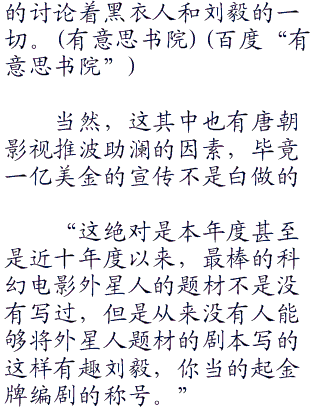 的讨论着黑衣人和刘毅的一
切。(有意思书院) (百度“有
意思书院”)
当然，这其中也有唐朝
影视推波助澜的因素，毕竟
一亿美金的宣传不是白做的
“这绝对是本年度甚至
是近十年度以来，最棒的科
幻电影外星人的题材不是没
有写过，但是从来没有人能
够将外星人题材的剧本写的
这样有趣刘毅，你当的起金
牌编剧的称号。”